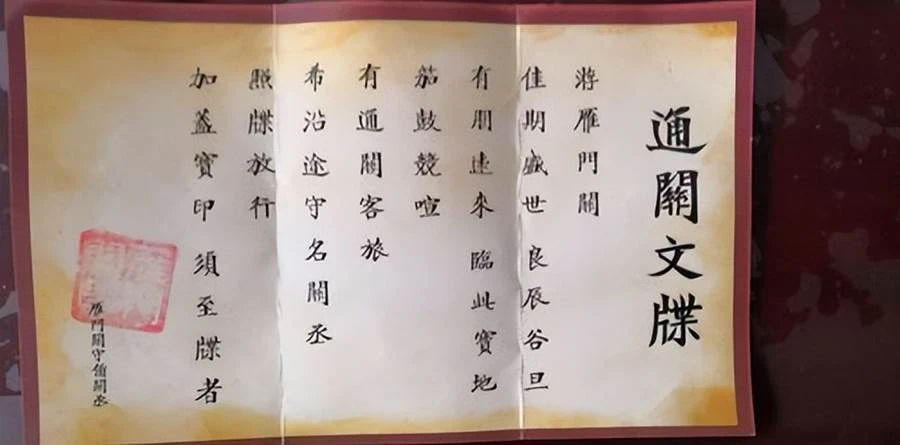 通關文牒
游雁門關
佳期盛世 良辰谷旦
有朋遠來 臨此寶地
笳鼓競喧
有通關客旅
希沿途守名關丞
照牒放行
加蓋寶印 須至牒者
雁門關守備關丞